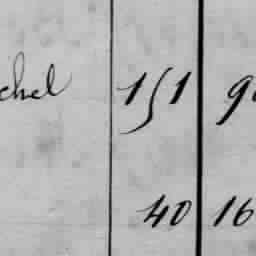 chel 151 9
40 16